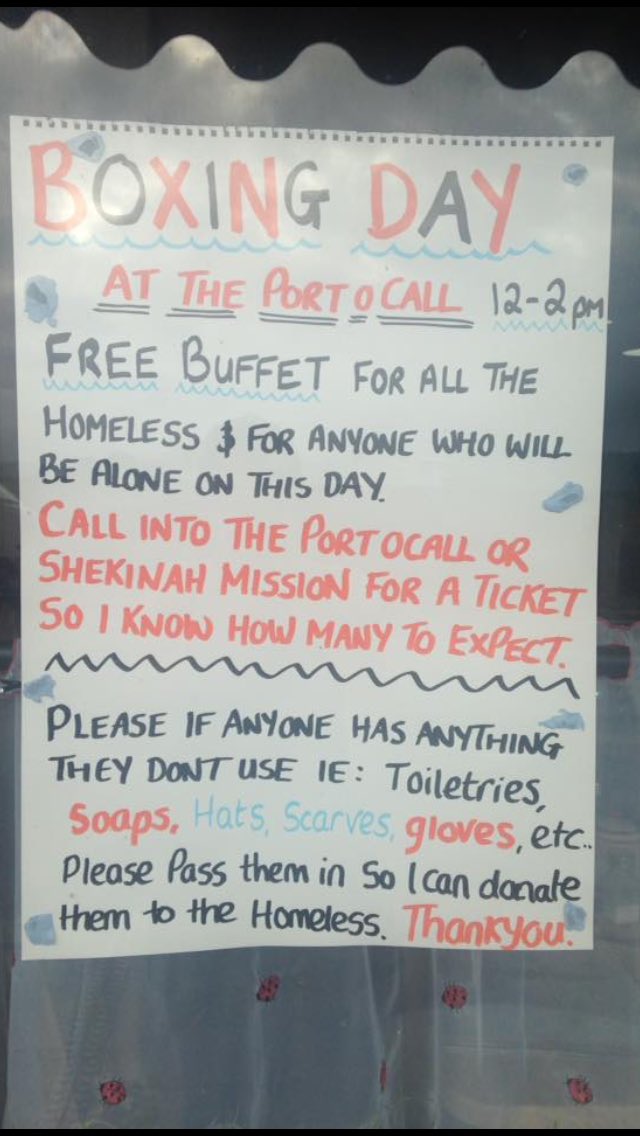 BOXING DAY
AT THE PORT O CALL 12-2pm
FREE BUFFET FOR ALL THE
HOMELESS & FOR ANYONE WHO WILL
BE ALONE ON THIS DAY.
CALL INTO THE PORTOCALL OR
SHEKINAH MISSION FOR A TICKET
SO I KNOW HOW MANY TO EXPECT.
PLEASE IF ANYONE HAS ANYTHING
THEY DONT USE IE: Toiletries,
Soaps, Hats, Scarves, gloves, etc..
Please Pass them in So I can donate
them to the Homeless. Thankyou.